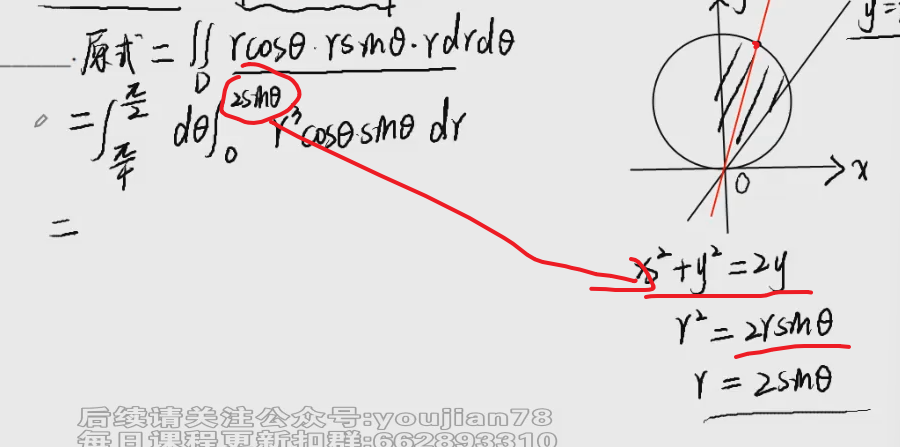 y=
y
原式 = ∬_D rcosθ·rsinθ·rdrdθ
= ∫_{π/4}^{π/2} dθ ∫_0^{2sinθ} r³cosθ·sinθ dr
x
O
=
x²+y²=2y
r²=2rsinθ
r=2sinθ
后续请关注公众号:youjian78
每日课程更新扣群:662893310